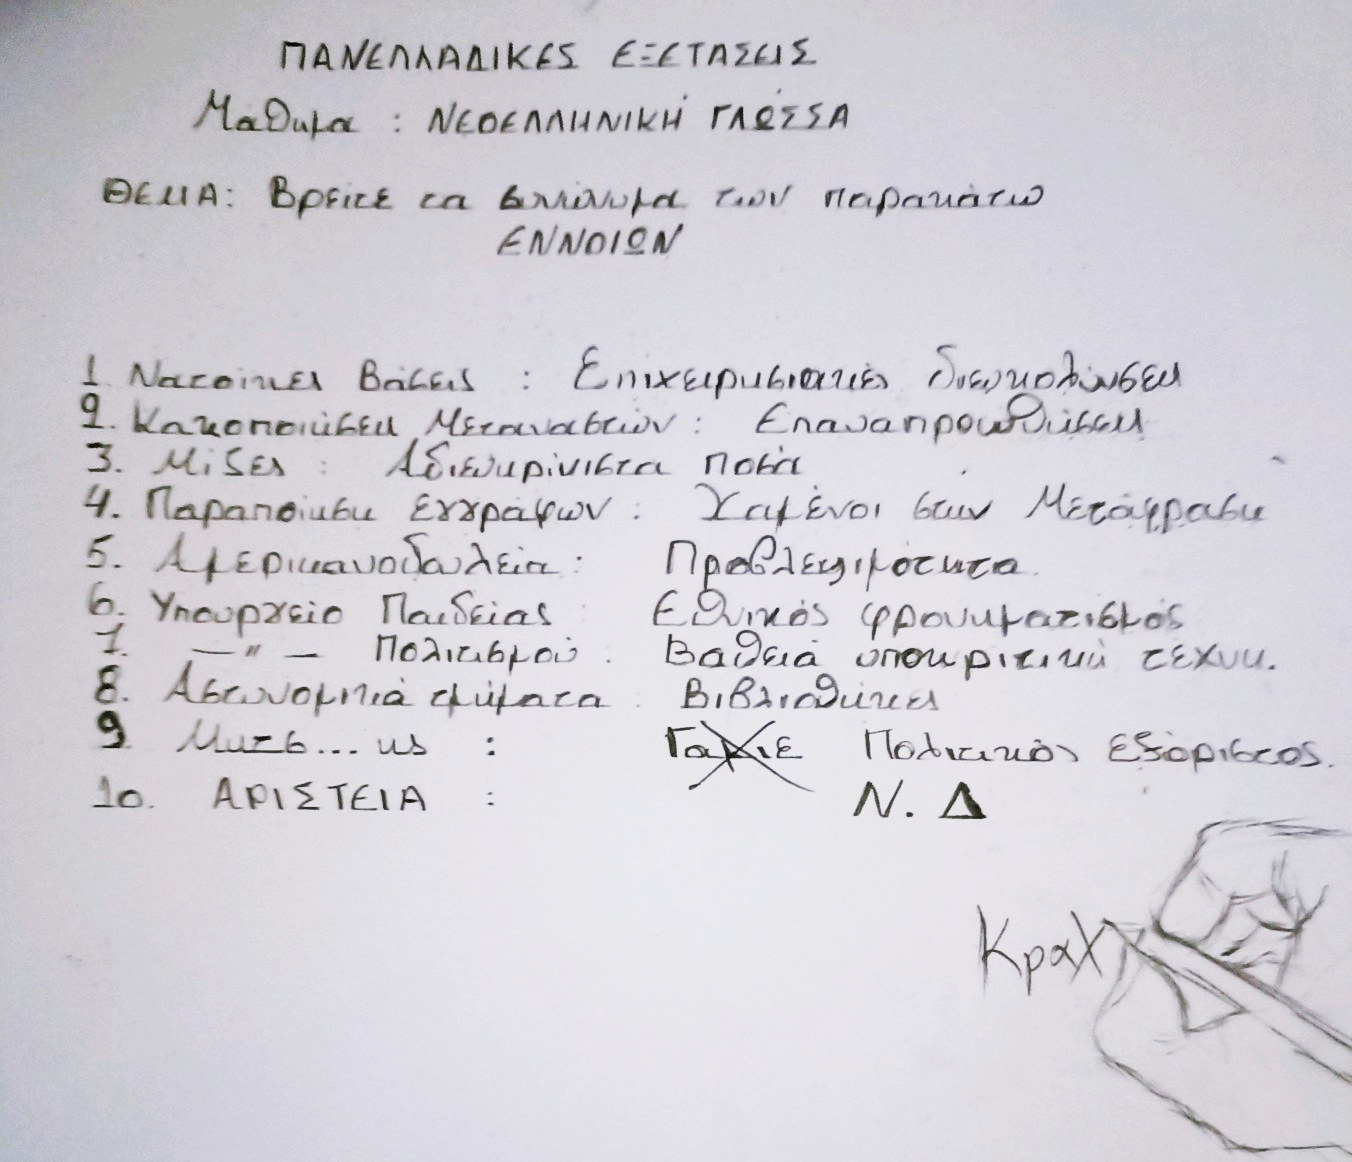 ΠΑΝΕΛΛΑΔΙΚΕΣ ΕΞΕΤΑΣΕΙΣ
Μάθημα : ΝΕΟΕΛΛΗΝΙΚΗ ΓΛΩΣΣΑ
ΘΕΜΑ: Βρείτε τα των παρακάτω
ΕΝΝΟΙΩΝ
1 Νατοϊκές Βάσεις : Επιχειρησιακές διευκολύνσεις
2. Κακοποιήσεις Μεταναστών : Επαναπροωθήσεις
3. Μίζες : Αδιευκρίνιστα ποσά
4. Παραποίηση εγγράφων : Χαμένοι στην Μετάφραση
5. Αμερικανοδουλεία : Προβλεψιμότητα.
6. Υπουργείο Παιδείας : Εθνικός φρονηματισμός
7. —"— Πολιτισμού : Βαθειά υποκριτική τέχνη.
8. Αστυνομικά τμήματα : Βιβλιοθήκες
9. Μητσ...ης : Πολιτικός εξόριστος.
10. ΑΡΙΣΤΕΙΑ : Ν. Δ
Κραχ